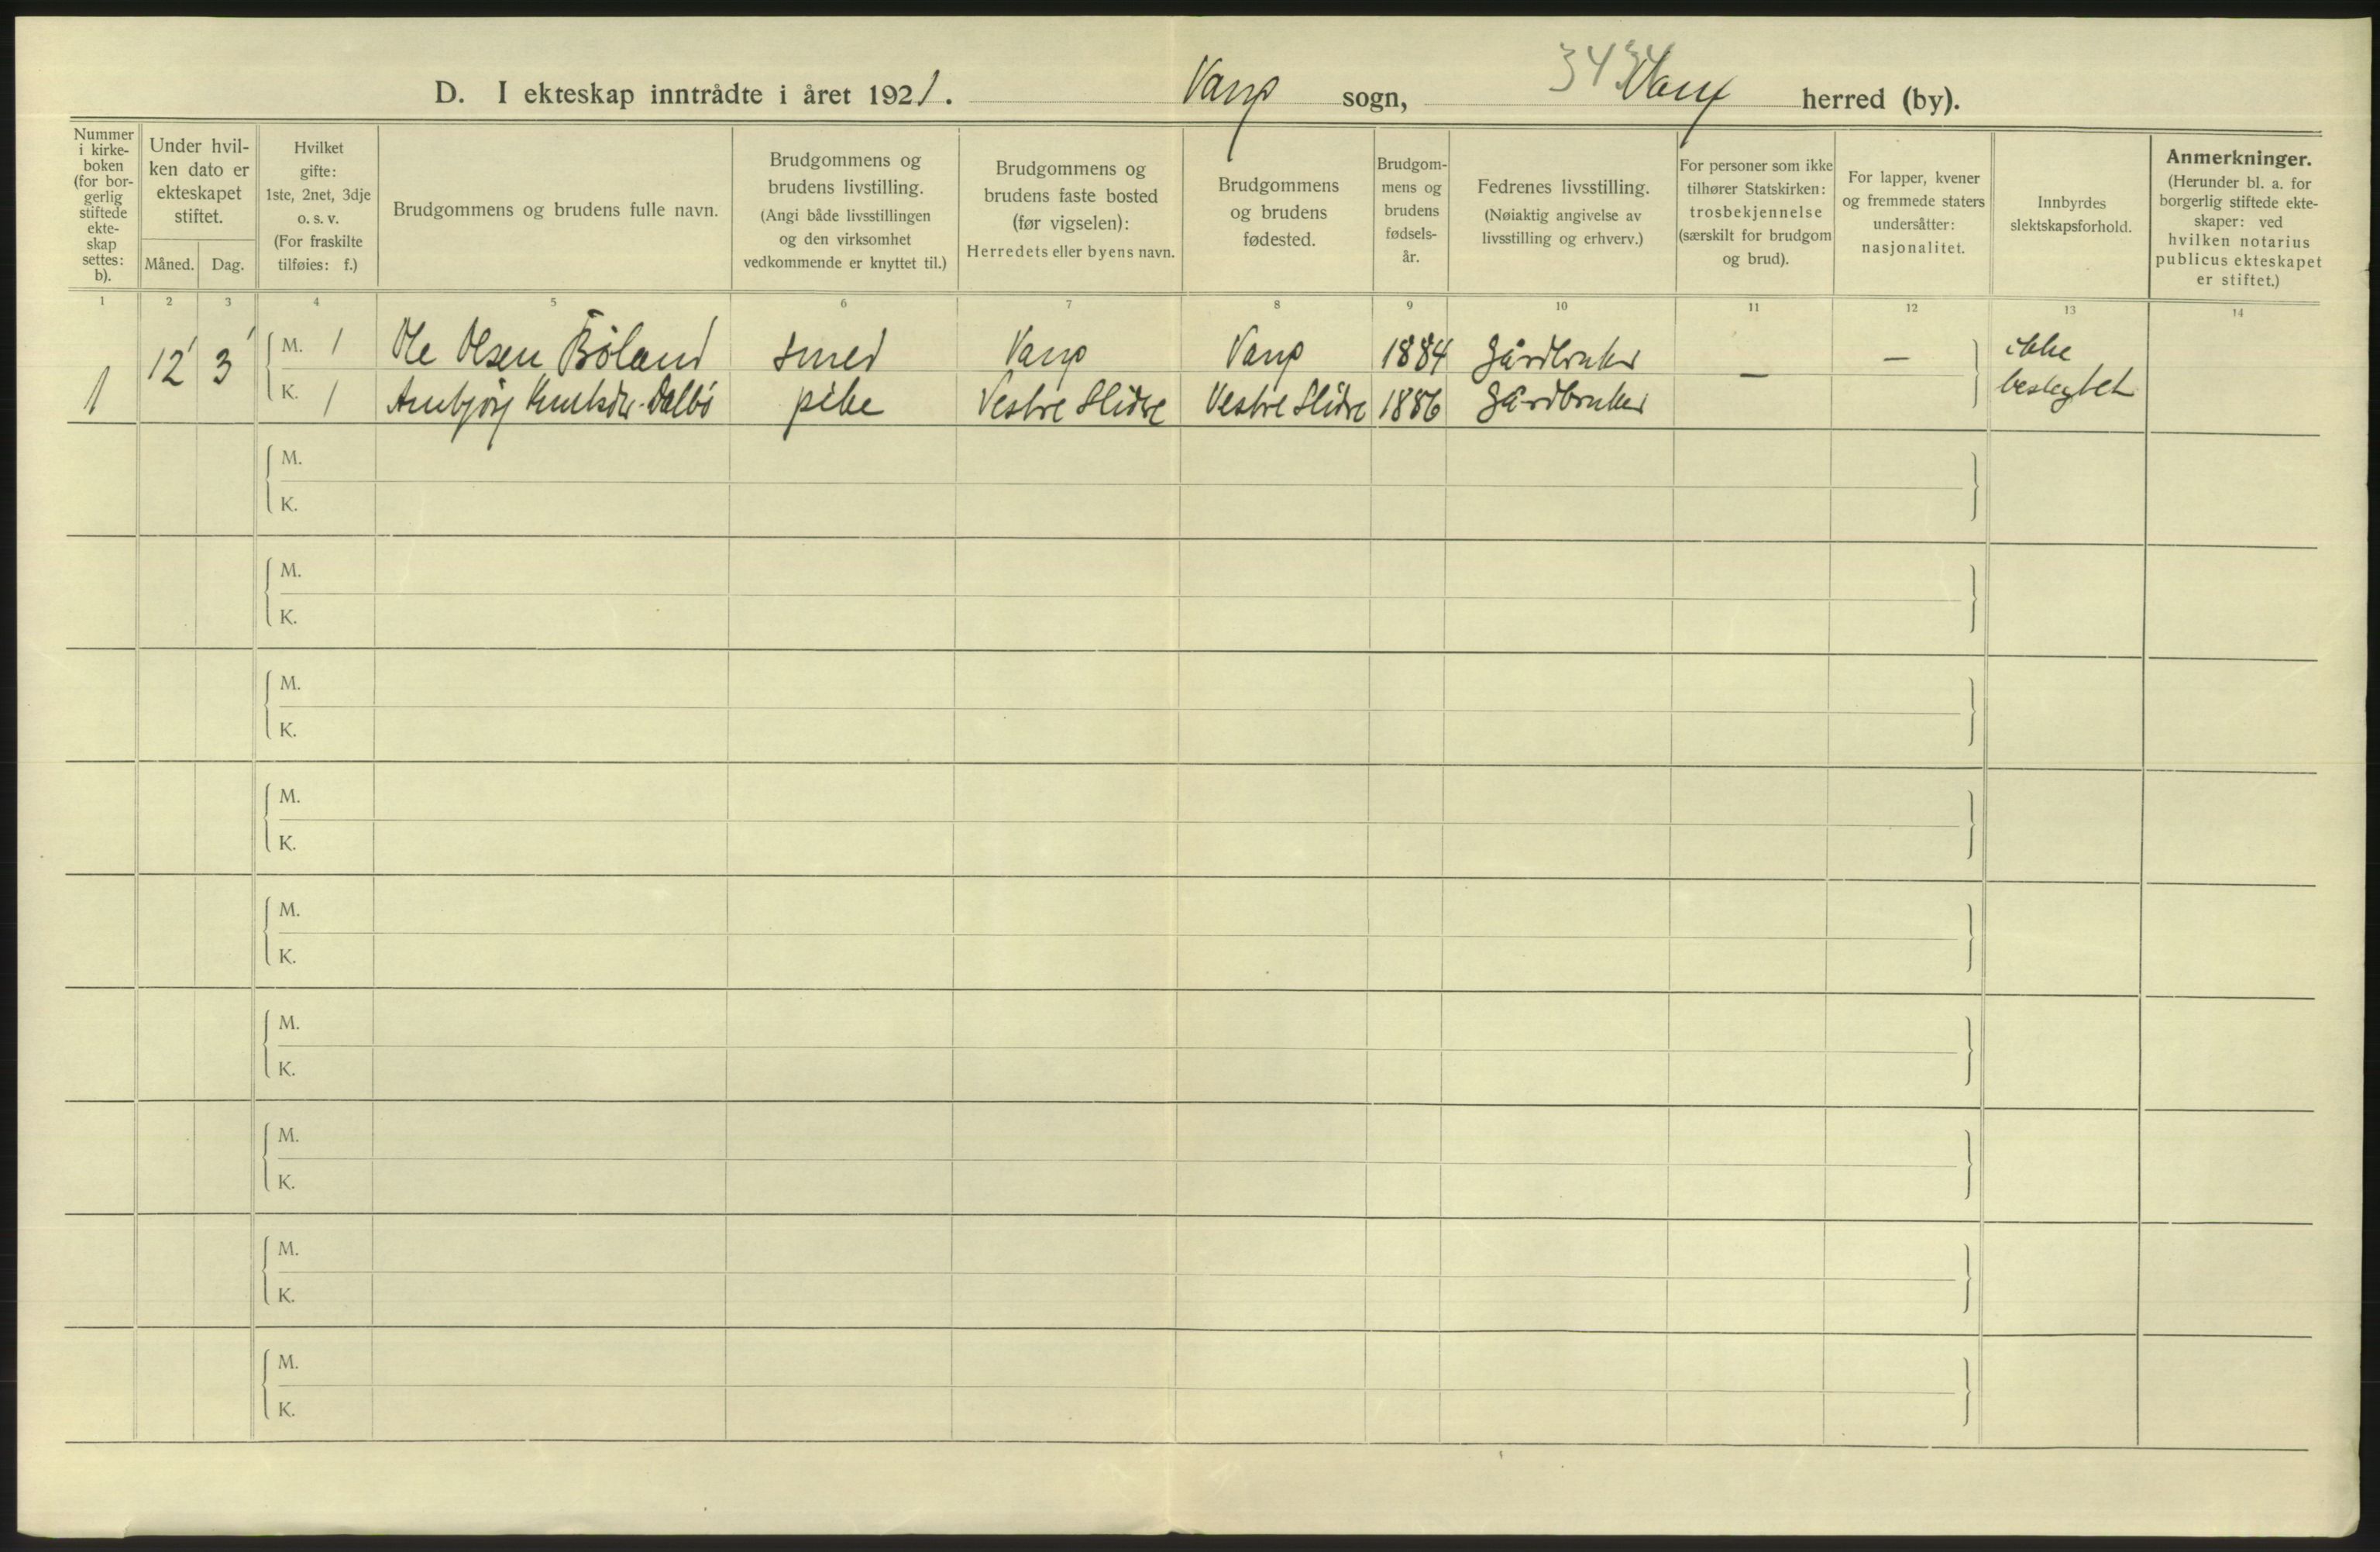 D. I ekteskap inntrådte i året 1921. Vang sogn, Vang herred (by).
3434
Nummer i kirke- boken (for bor- gerlig stiftede ekte- skap settes: b).
Under hvil- ken dato er ekteskapet stiftet.
Måned. Dag.
Hvilket gifte: 1ste, 2net, 3dje o. s. v. (For fraskilte tilføies: f.)
Brudgommens og brudens fulle navn.
Brudgommens og brudens livstilling. (Angi både livsstillingen og den virksomhet vedkommende er knyttet til.)
Brudgommens og brudens faste bosted (før vigselen): Herredets eller byens navn.
Brudgommens og brudens fødested.
Brudgom- mens og brudens fødsels- år.
Fedrenes livsstilling. (Nøiaktig angivelse av livsstilling og erhverv.)
For personer som ikke tilhører Statskirken: trosbekjennelse (særskilt for brudgom og brud).
For lapper, kvener og fremmede staters undersåtter: nasjonalitet.
Innbyrdes slektskapsforhold.
Anmerkninger. (Herunder bl. a. for borgerlig stiftede ekte- skaper: ved hvilken notarius publicus ekteskapet er stiftet.)
1 2 3 4 5 6 7 8 9 10 11 12 13 14
1 12 3 M. 1 Ole Olsen Böland smed Vang Vang 1884 gårdbruker — — ikke
K. 1 Knutsdtr. Dalbö pike Vestre Slidre Vestre Slidre 1886 gårdbruker beslegtet
M.
K.
M.
K.
M.
K.
M.
K.
M.
K.
M.
K.
M.
K.
M.
K.
M.
K.